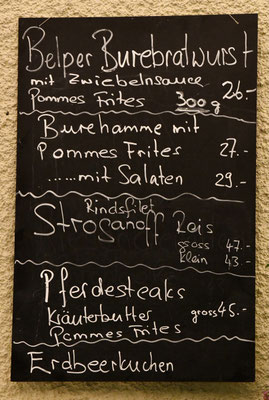 Belper Burebratwurst
mit Zwiebelnsauce
Pommes Frites 300g 26.-
Burehamme mit
Pommes Frites 27.-
......mit Salaten 29.-
Rindsfilet
Stroganoff Reis
gross 47.-
klein 43.-
Pferdesteaks
Kräuterbutter gross 45.-
Pommes Frites
Erdbeerkuchen